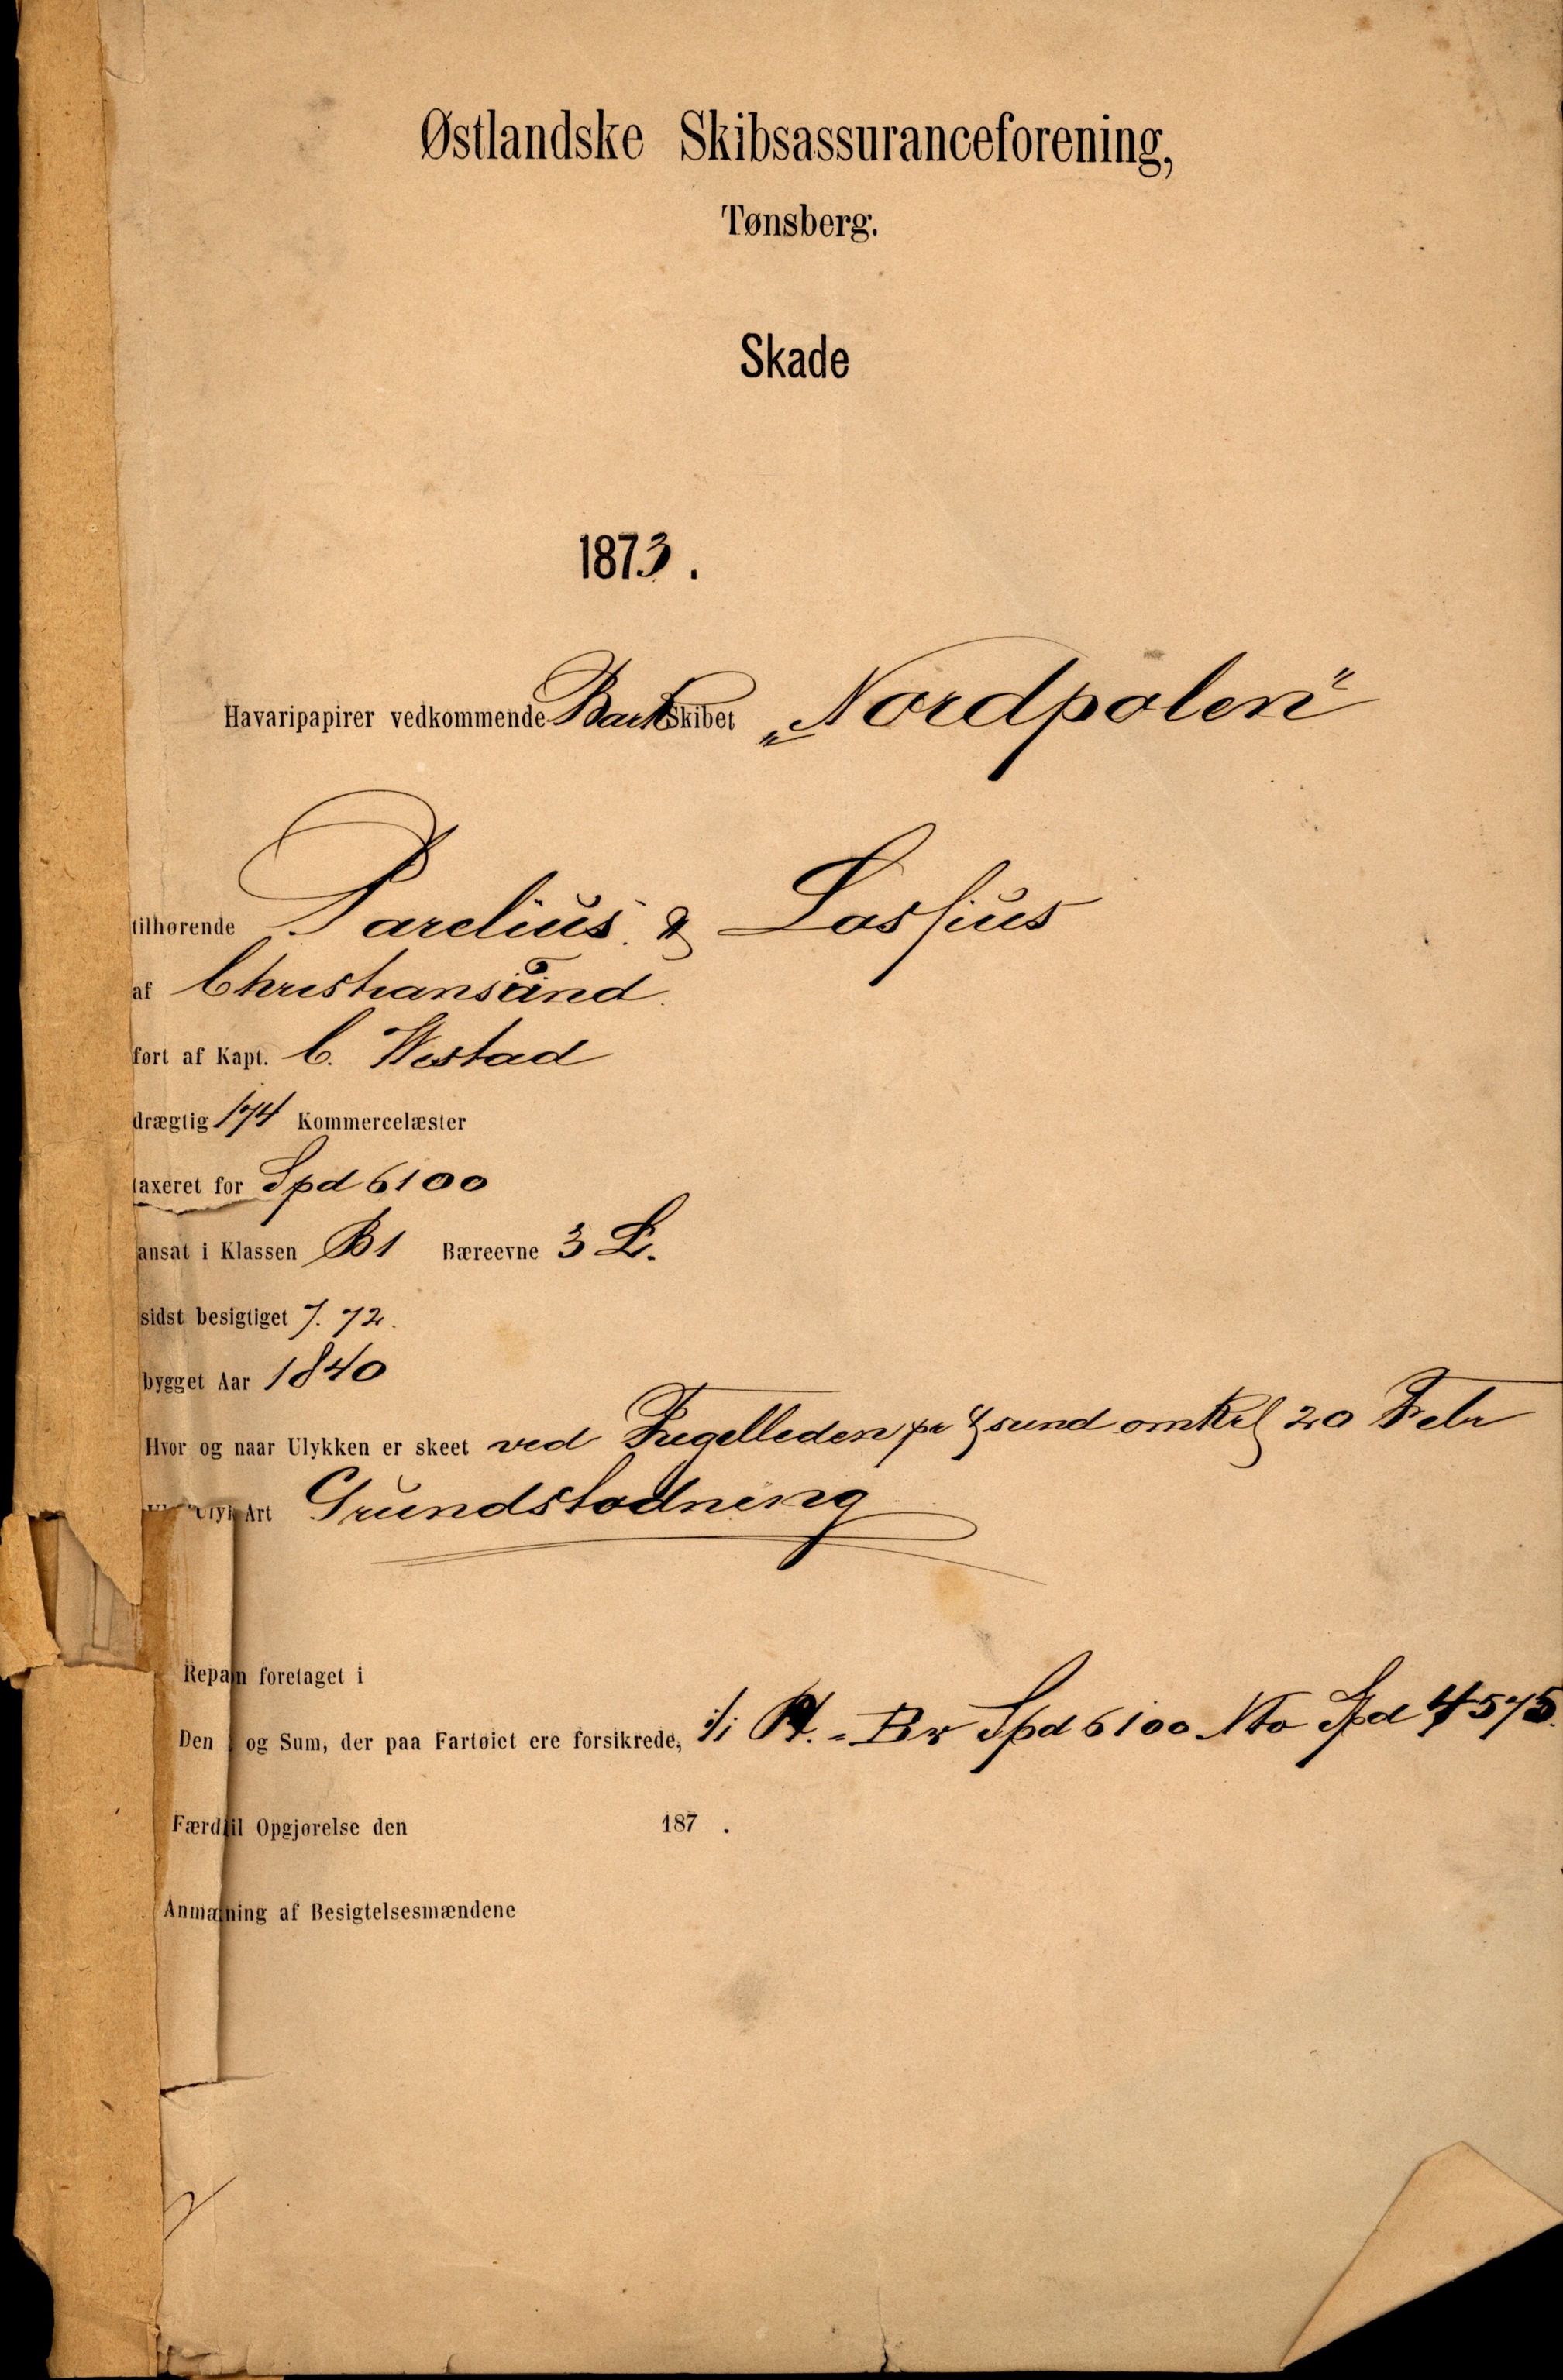 Østlandske Skibsassuranceforening,
Tønsberg.
Skade
1873.
Havaripapirer vedkommende Bark Skibet „Nordpolen"
tilhørende Parelius & Lossius
af Christiansund
ført af Kapt. C. Westad
drægtig 174 Kommercelæster
taxeret for Spd 6100
ansat i Klassen B1 Bæreevne 3 L.
sidst besigtiget 7. 72.
bygget Aar 1840
Hvor og naar Ulykken er skeet ved 20 Febr
Art Grundstødning
foretaget i
Den og Sum, der paa Fartøiet ere forsikrede, Br Spd 6100 Nto Spd 4575.
Opgjørelse den 187 .
af Besigtelsesmændene